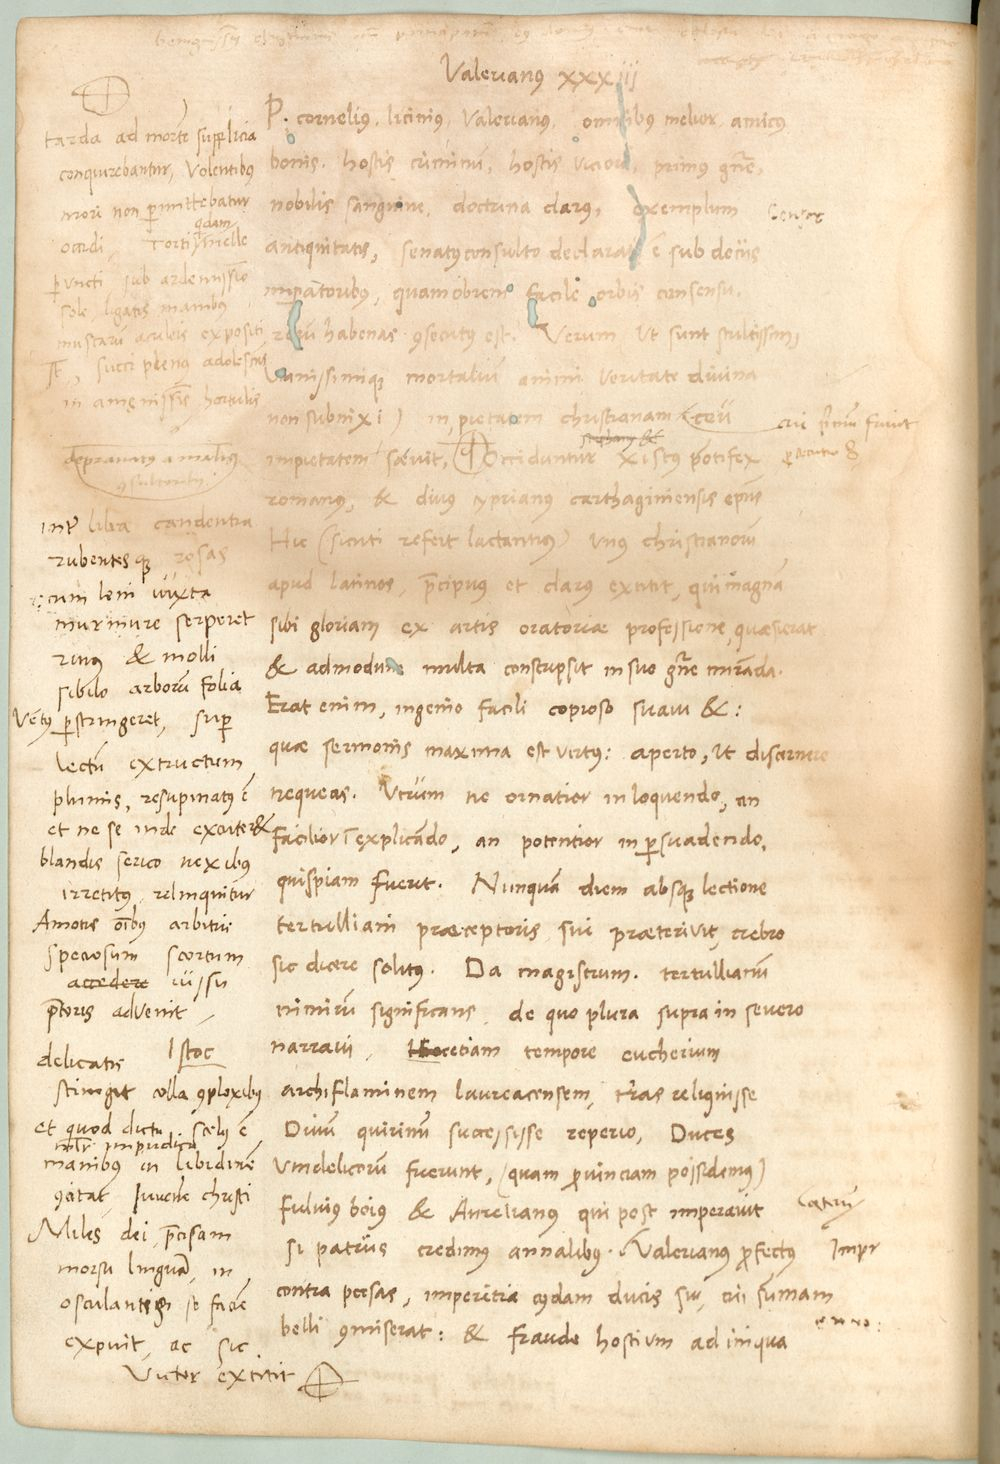 Valerianus xxxiii
P. cornelius. licinius. Valerianus. omnibus melior. amicus
bonis. hostis criminū, hostis primus gn̄e,
nobilis sanguine, doctrina clarus, exemplum
antiquitatis, senatusconsulto declaratus ē sub decijs
imperatoribus, quamobrem facile orbis consensu,
rerū habenas ꝯsecutus est. Verum Ut sunt stultissimi
Vanissimiqꝫ mortaliū animi Veritate divina
non subnixi) in pietatem christianam ceu
impietatem sæviit, Occiduntur Xistus pōtifex
romanus, & divus cyprianus carthaginiensis ep̄us
Hic (sicuti refert lactantius) Unus christianorū
apud latinos, p̄cipuus et clarus extitit, qui magnā
sibi gloriam ex artis oratoriæ professione, quæsierat
& admodum multa conscripsit in suo gn̄e mirāda.
Erat enim, ingenio facili copioso suavi &:
quæ sermonis maxima est virtus: aperto, Ut discernere
nequeas. Utrum ne ornatior in loquendo, an
facilior ī explicādo, an potentior in ꝑsuadendo,
quispiam fuerit. Nunquā diem absqꝫ lectione
tertulliani præceptoris sui præterivit, crebro
sic dicere solitus. Da magistrum. tertullianū
nimirū significans, de quo plura supra in severo
narravi, etiam tempore eucherium
archiflaminem laureacensem, tras reliquisse
Divū quirinū successisse reperio, Duces
Vindelicorū fuerunt, (quam ꝓvinciam possidemus)
Fulvius boius & Aurelianus qui post imperavit
si patrijs credimus annalibus. Valerianus ꝓfectus
contra persas, imperitia cuiusdam ducis sui, cui sūmam
belli ꝯmiserat: & fraude hostium ad iniqua
tarda ad mortē supplicia
conquirebantur, Volentibus
mori non ꝑmittebatur
occidi, Tortis
qdam
melle
ꝑuncti sub ardentissimo
sole ligatis manibus
muscarū aculeis expositi
succi plenus adolescens
in amęnissimis hortulis
depravatus a malis
ꝯsultoribus
inter lilia candentia
rubentesqꝫ rosas
cum leni iuxta
murmure serperet
rivus & molli
sibilo arborū folia
Vētus ꝑstringeret, super
lectū extructum
plumis, resupinatus ē
et ne se inde excuter&
blandis serico nexibus
irretitus, relinquitur
Amotis oībus arbitris
speciosum scortum
accedere iussu
p̄toris advenit,
delicatis Istoc
stringit colla ꝯplexibus
et quod dictu scelus ē
impudica
manibus in libidinē
ꝯcitat Juvenē christi
Miles dei p̄cisam
morsu linguā, in
osculantis se faciē
expuit, ac sic
Victor extitit
cui fuint
Impr